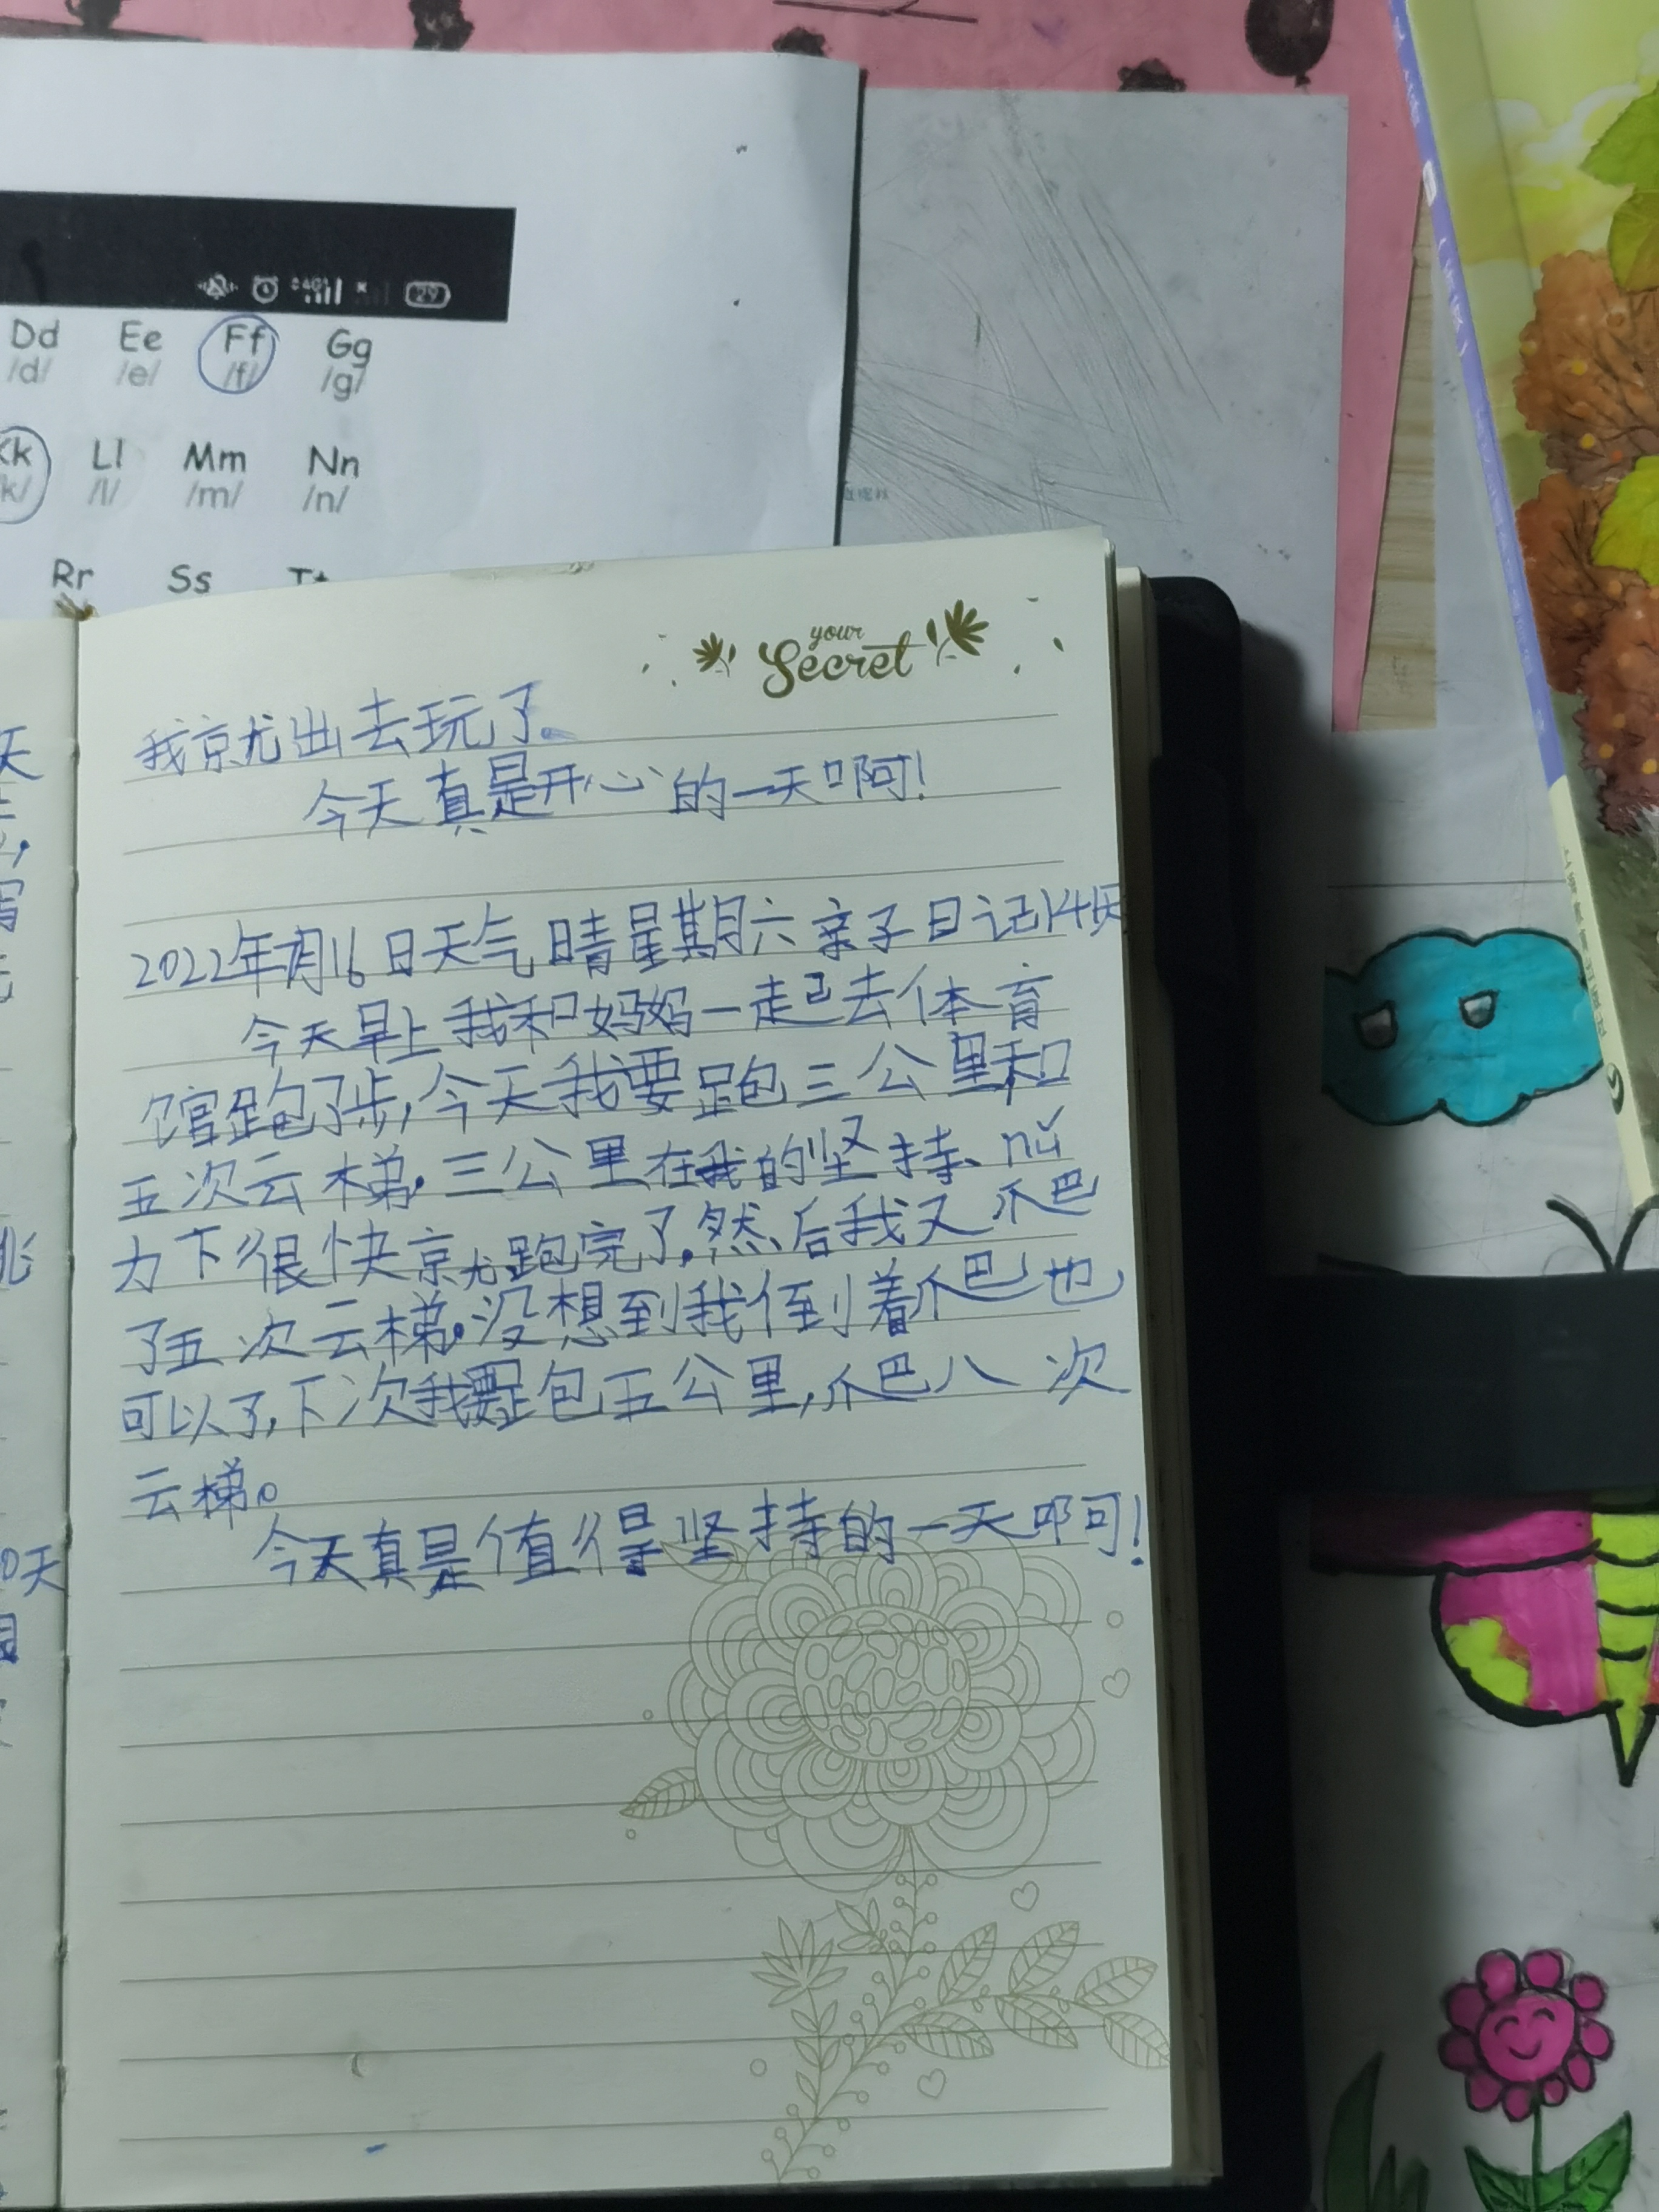 29
Dd Ee Ff Gg
/d/ /e/ /f/ /g/
Kk Ll Mm Nn
/k/ /l/ /m/ /n/
Rr Ss Tt
your
Secret
我就出去玩了。
今天真是开心的一天啊!
2022年 月16日天气晴星期六亲子日记 天
今天早上我和妈妈一起去体育
馆跑了步,今天我要跑三公里和
五次云梯。三公里在我的坚持、nǔ
力下很快就跑完了,然后我又爬
了五次云梯。没想到我倒着爬也
可以了,下次我要跑五公里,爬八次
云梯。
今天真是值得坚持的一天啊!